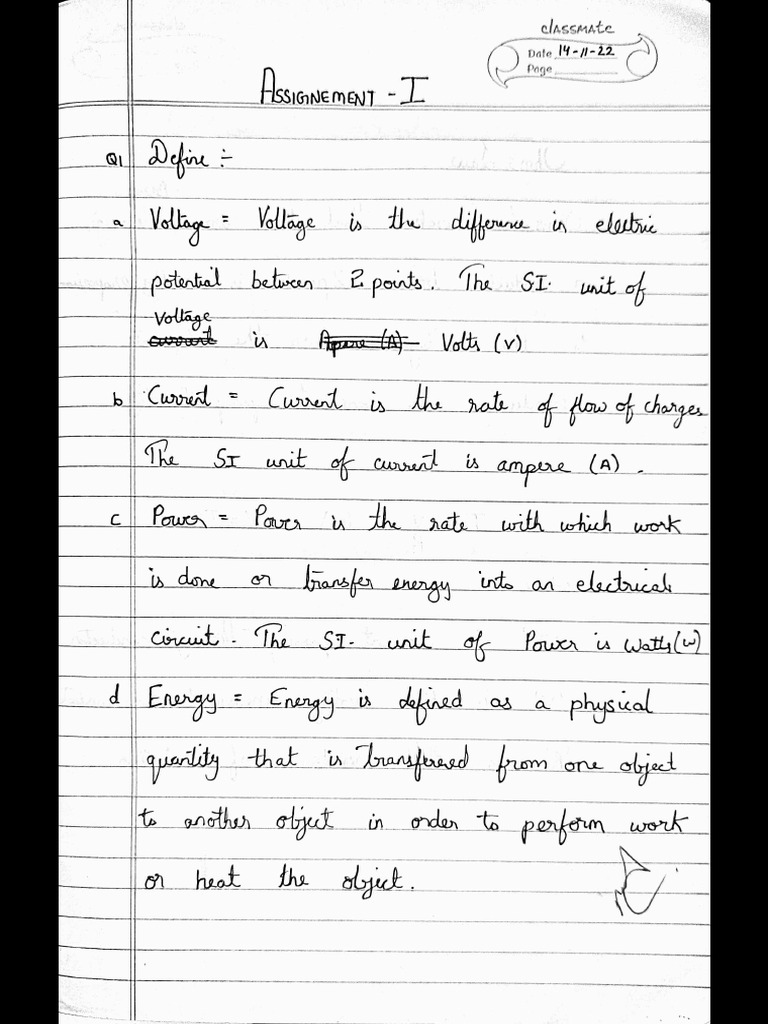 classmate
Date 14-11-22
Page
ASSIGNEMENT - I
Q1 Define :-
a Voltage = Voltage is the difference in electric
potential between 2 points. The SI. unit of
Voltage
current is Apere (A) Volts (V)
b Current = Current is the rate of flow of charges
The SI unit of current is ampere (A).
c Power = Power is the rate with which work
is done or transfer energy into an electrical
circuit. The SI. unit of Power is Watts (W)
d Energy = Energy is defined as a physical
quantity that is transfered from one object
to another object in order to perform work
or heat the object.